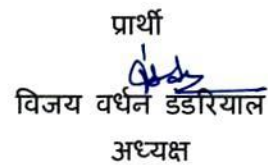 प्रार्थी
विजय वर्धन डंडरियाल
अध्यक्ष